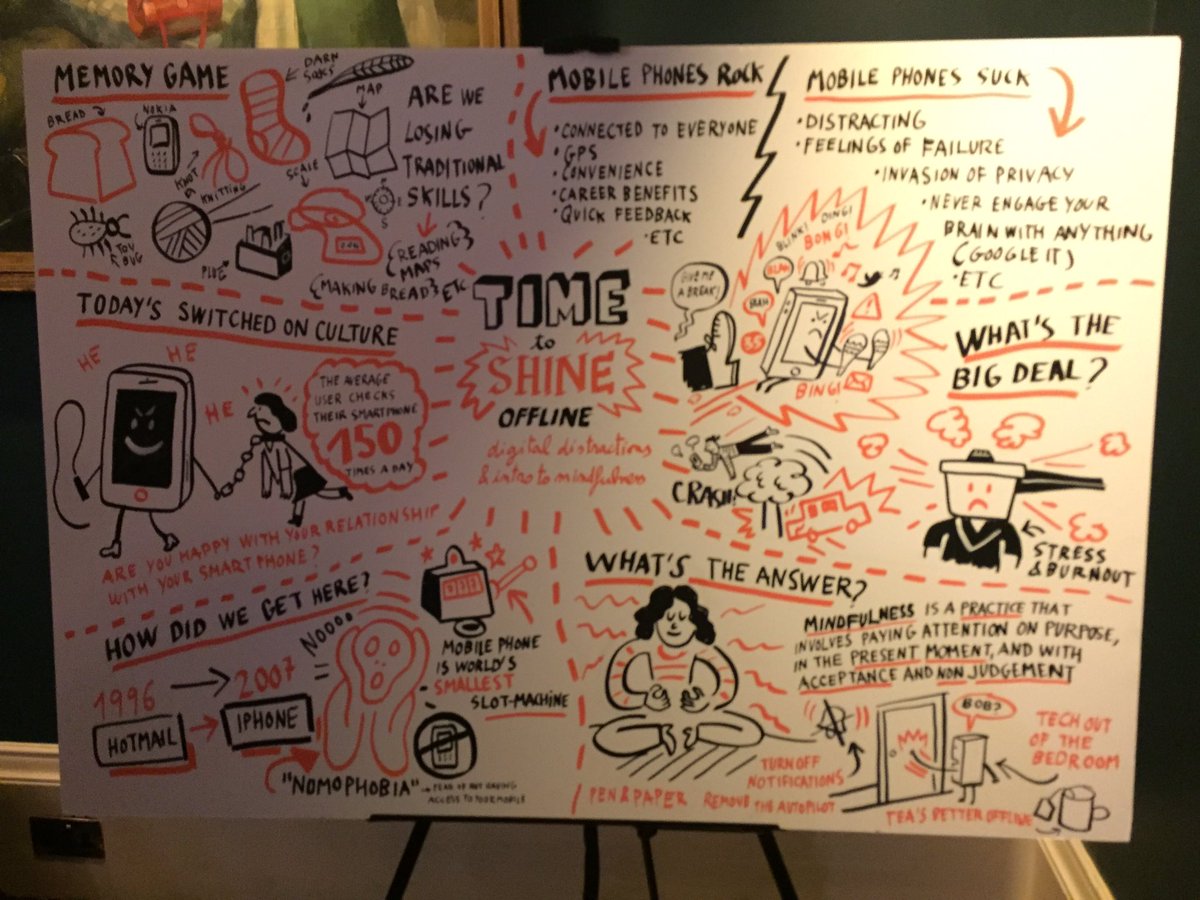 MEMORY GAME
BREAD
NOKIA
DARN
SOKS
MAP
KNOT
KNITTING
SCALE
TOY
BUG
PLUG
ARE WE
LOSING
TRADITIONAL
SKILLS?
{READING}
MAPS
{MAKING BREAD} ETC
MOBILE PHONES ROCK
• CONNECTED TO EVERYONE
• GPS
• CONVENIENCE
• CAREER BENEFITS
• QUICK FEEDBACK
• ETC
MOBILE PHONES SUCK
• DISTRACTING
• FEELINGS OF FAILURE
• INVASION OF PRIVACY
• NEVER ENGAGE YOUR
BRAIN WITH ANYTHING
(GOOGLE IT)
• ETC
TIME
to
SHINE
OFFLINE
digital distractions
& intro to mindfulness
TODAY'S SWITCHED ON CULTURE
HE
HE
HE
THE AVERAGE
USER CHECKS
THEIR SMARTPHONE
150
TIMES A DAY
ARE YOU HAPPY WITH YOUR RELATIONSHIP
WITH YOUR SMARTPHONE?
GIVE ME
A BREAK!
BLINK!
DING!
BONG!
BLAH
BLAH
35
BING!
CRASH!
WHAT'S THE
BIG DEAL?
STRESS
& BURNOUT
HOW DID WE GET HERE?
1996
2007
HOTMAIL
IPHONE
NOOOO
=
"NOMOPHOBIA"
FEAR OF NOT HAVING
ACCESS TO YOUR MOBILE
MOBILE PHONE
IS WORLD'S
SMALLEST
SLOT-MACHINE
WHAT'S THE ANSWER?
MINDFULNESS IS A PRACTICE THAT
INVOLVES PAYING ATTENTION ON PURPOSE,
IN THE PRESENT MOMENT, AND WITH
ACCEPTANCE AND NON JUDGEMENT
BOB?
TECH OUT
OF THE
BEDROOM
TURN OFF
NOTIFICATIONS
PEN & PAPER
REMOVE THE AUTOPILOT
TEA'S BETTER OFFLINE